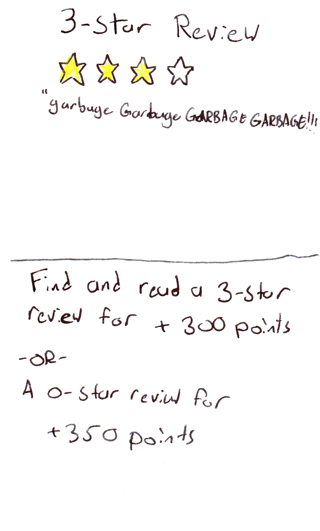 3-star Review
"garbage Garbage GARBAGE GARBAGE!!!
Find and read a 3-star
review for +300 points
-OR-
A 0-star review for
+350 points